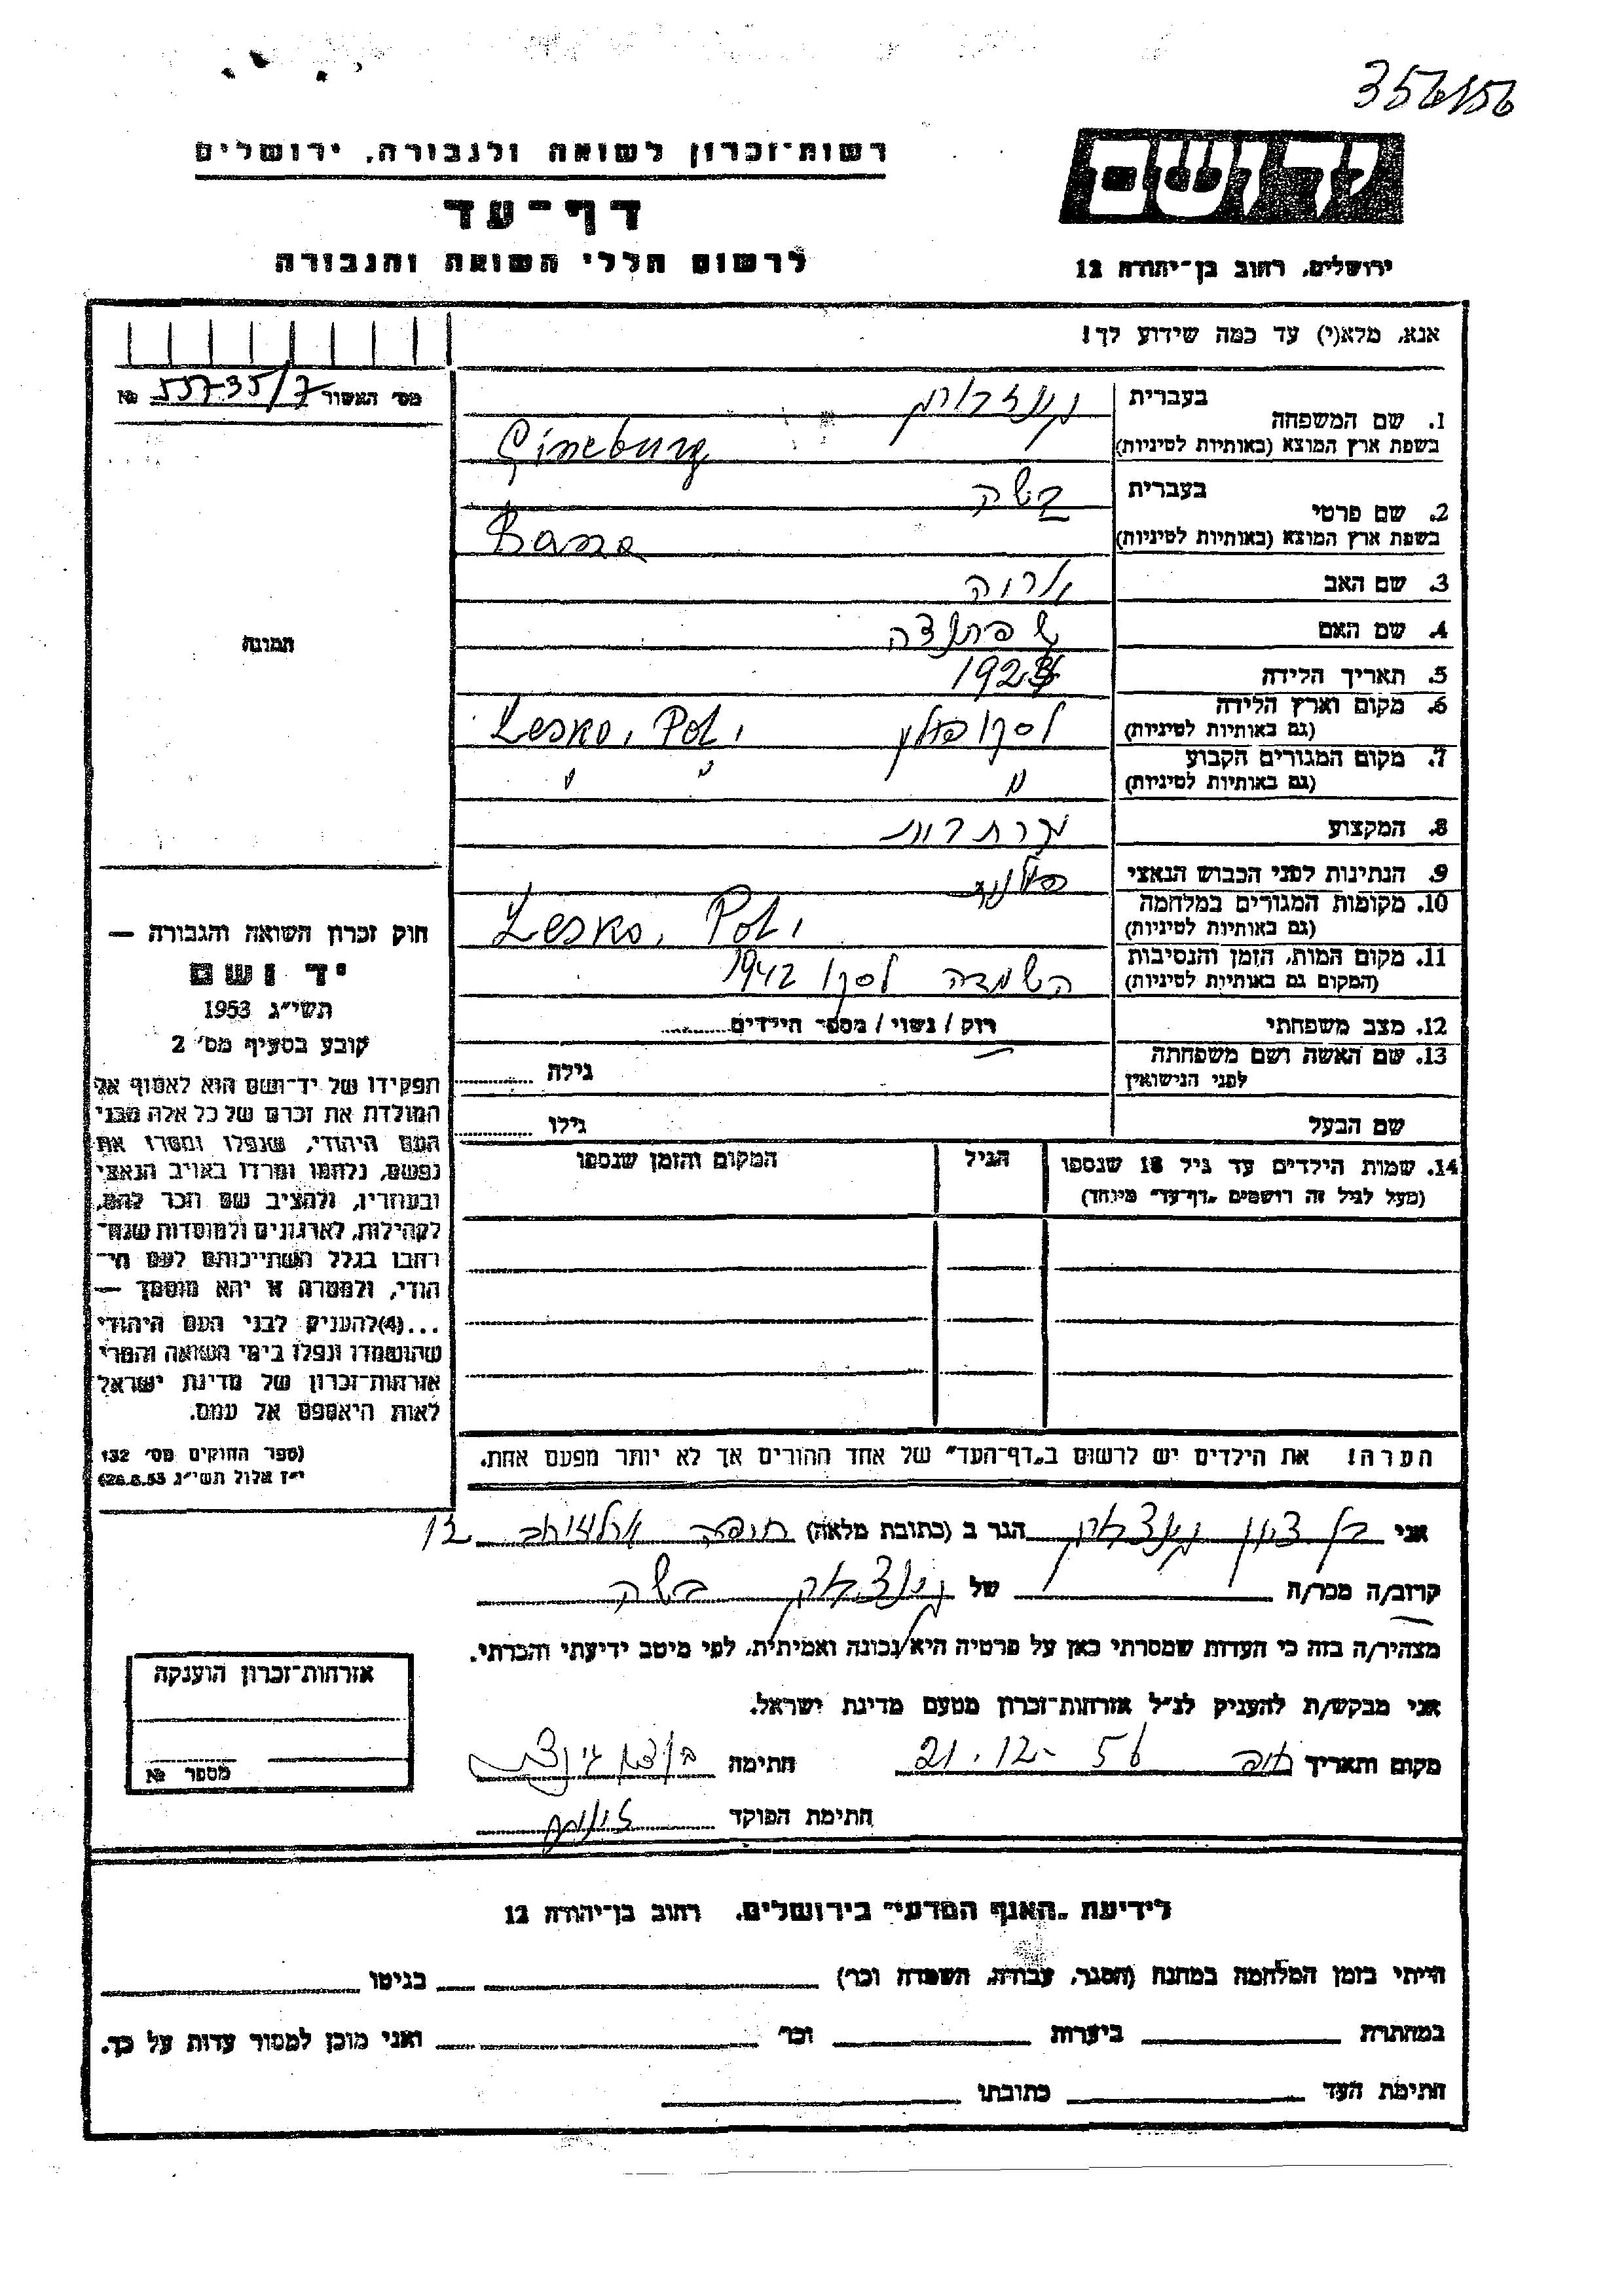 356/56
רשות־זכרון לשואה ולגבורה, ירושלים
יד ושם
דף־עד
לרשום חללי השואה והגבורה
ירושלים, רחוב בן־יהודה 12
אנא, מלא(י) עד כמה שידוע לך!
מס׳ האשור № 55735/7
1. שם המשפחה
בעברית
בשפת ארץ המוצא (באותיות לטיניות) Ginsburg
2. שם פרטי
בעברית בשה
בשפת ארץ המוצא (באותיות לטיניות)
3. שם האב
4. שם האם
5. תאריך הלידה
6. מקום וארץ הלידה
(גם באותיות לטיניות) לסקו פולין Lesko, Pol,
7. מקום המגורים הקבוע
(גם באותיות לטיניות) " " "
8. המקצוע
9. הנתינות לפני הכבוש הנאצי
10. מקומות המגורים במלחמה
(גם באותיות לטיניות) Lesko, Pol,
11. מקום המות, הזמן והנסיבות
(המקום גם באותיות לטיניות) השמדה לסקו 1942
12. מצב משפחתי רוק / נשוי / מספר הילדים
13. שם האשה ושם משפחתה
לפני הנישואין גילה
שם הבעל גילו
14. שמות הילדים עד גיל 18 שנספו הגיל המקום והזמן שנספו
(מעל לגיל זה רושמים „דף־עד" מיוחד)
הערה! את הילדים יש לרשום ב„דף־העד" של אחד ההורים אך לא יותר מפעם אחת.
תמונה
חוק זכרון השואה והגבורה —
יד ושם
תשי״ג 1953
קובע בסעיף מס׳ 2
תפקידו של יד־ושם הוא לאסוף אל
המולדת את זכרם של כל אלה מבני
העם היהודי, שנפלו ומסרו את
נפשם, נלחמו ומרדו באויב הנאצי
ובעוזריו, ולהציב שם וזכר להם,
לקהילות, לארגונים ולמוסדות שנח־
רבו בגלל השתייכותם לעם הי־
הודי, ולמטרה זו יהא מוסמך —
...(4)להעניק לבני העם היהודי
שהושמדו ונפלו בימי השואה והמרי
אזרחות־זכרון של מדינת ישראל
לאות היאספם אל עמם.
(ספר החוקים מס׳ 132
י״ז אלול תשי״ג 28.8.53)
אני בן ציון גינצבורג הגר ב (כתובת מלאה) חיפה ארלוזורוב 12
קרוב/ה מכר/ה של גינצבורג בשה
מצהיר/ה בזה כי העדות שמסרתי כאן על פרטיה היא נכונה ואמיתית, לפי מיטב ידיעתי והכרתי.
אני מבקש/ת להעניק לנ״ל אזרחות־זכרון מטעם מדינת ישראל.
מקום ותאריך חיפה 21.12.56 חתימה
חתימת הפוקד
אזרחות־זכרון הוענקה
מספר №
לידיעת „האגף המדעי" בירושלים, רחוב בן־יהודה 12
הייתי בזמן המלחמה במחנה (הסגר, עבודה, השמדה וכו׳) בגיטו
במחתרת ביערות וכו׳ ואני מוכן למסור עדות על כך.
חתימת העד כתובתו